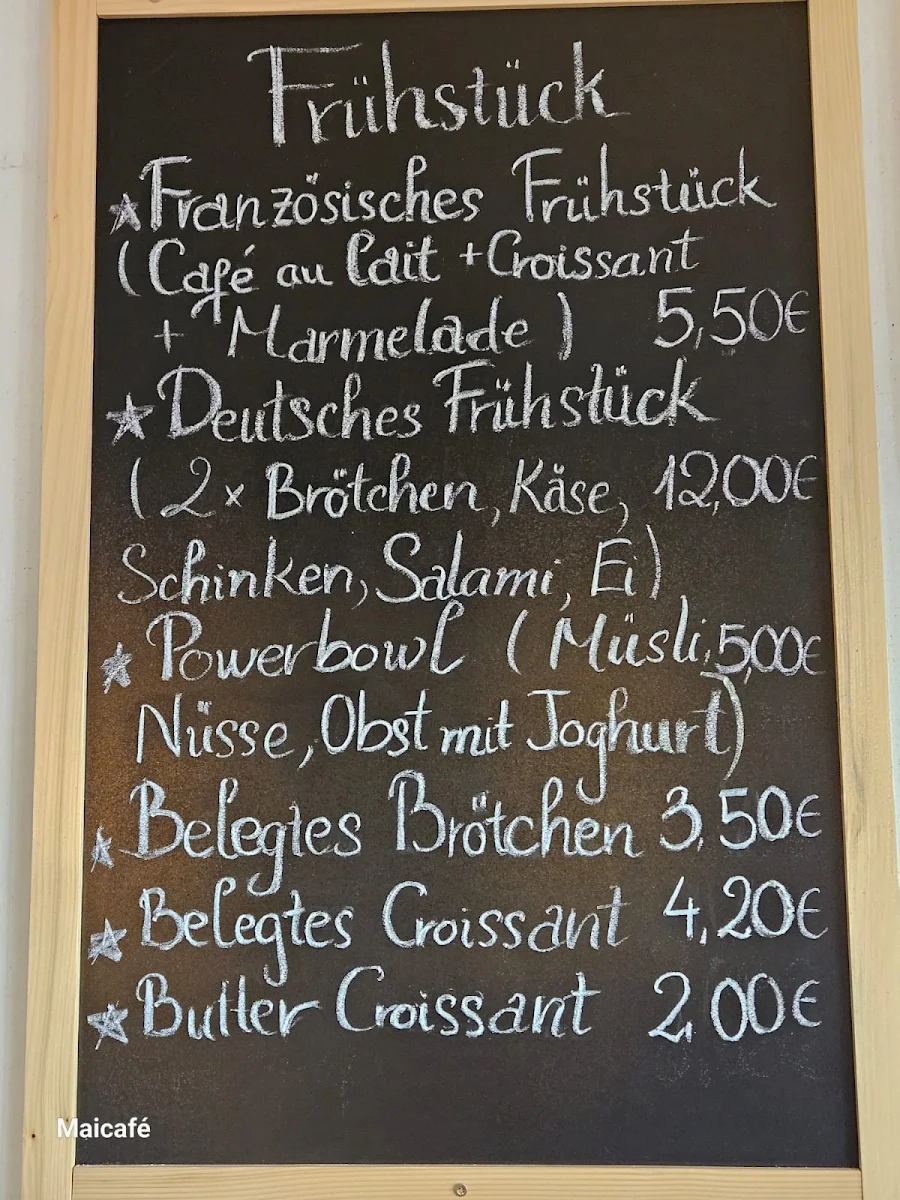 Frühstück
Französisches Frühstück
(Café au lait + Croissant
+ Marmelade) 5,50€
Deutsches Frühstück
(2x Brötchen, Käse, 12,00€
Schinken, Salami, Ei)
Powerbowl (Müsli, 5,00€
Nüsse, Obst mit Joghurt)
Belegtes Brötchen 3,50€
Belegtes Croissant 4,20€
Butter Croissant 2,00€
Maicafé